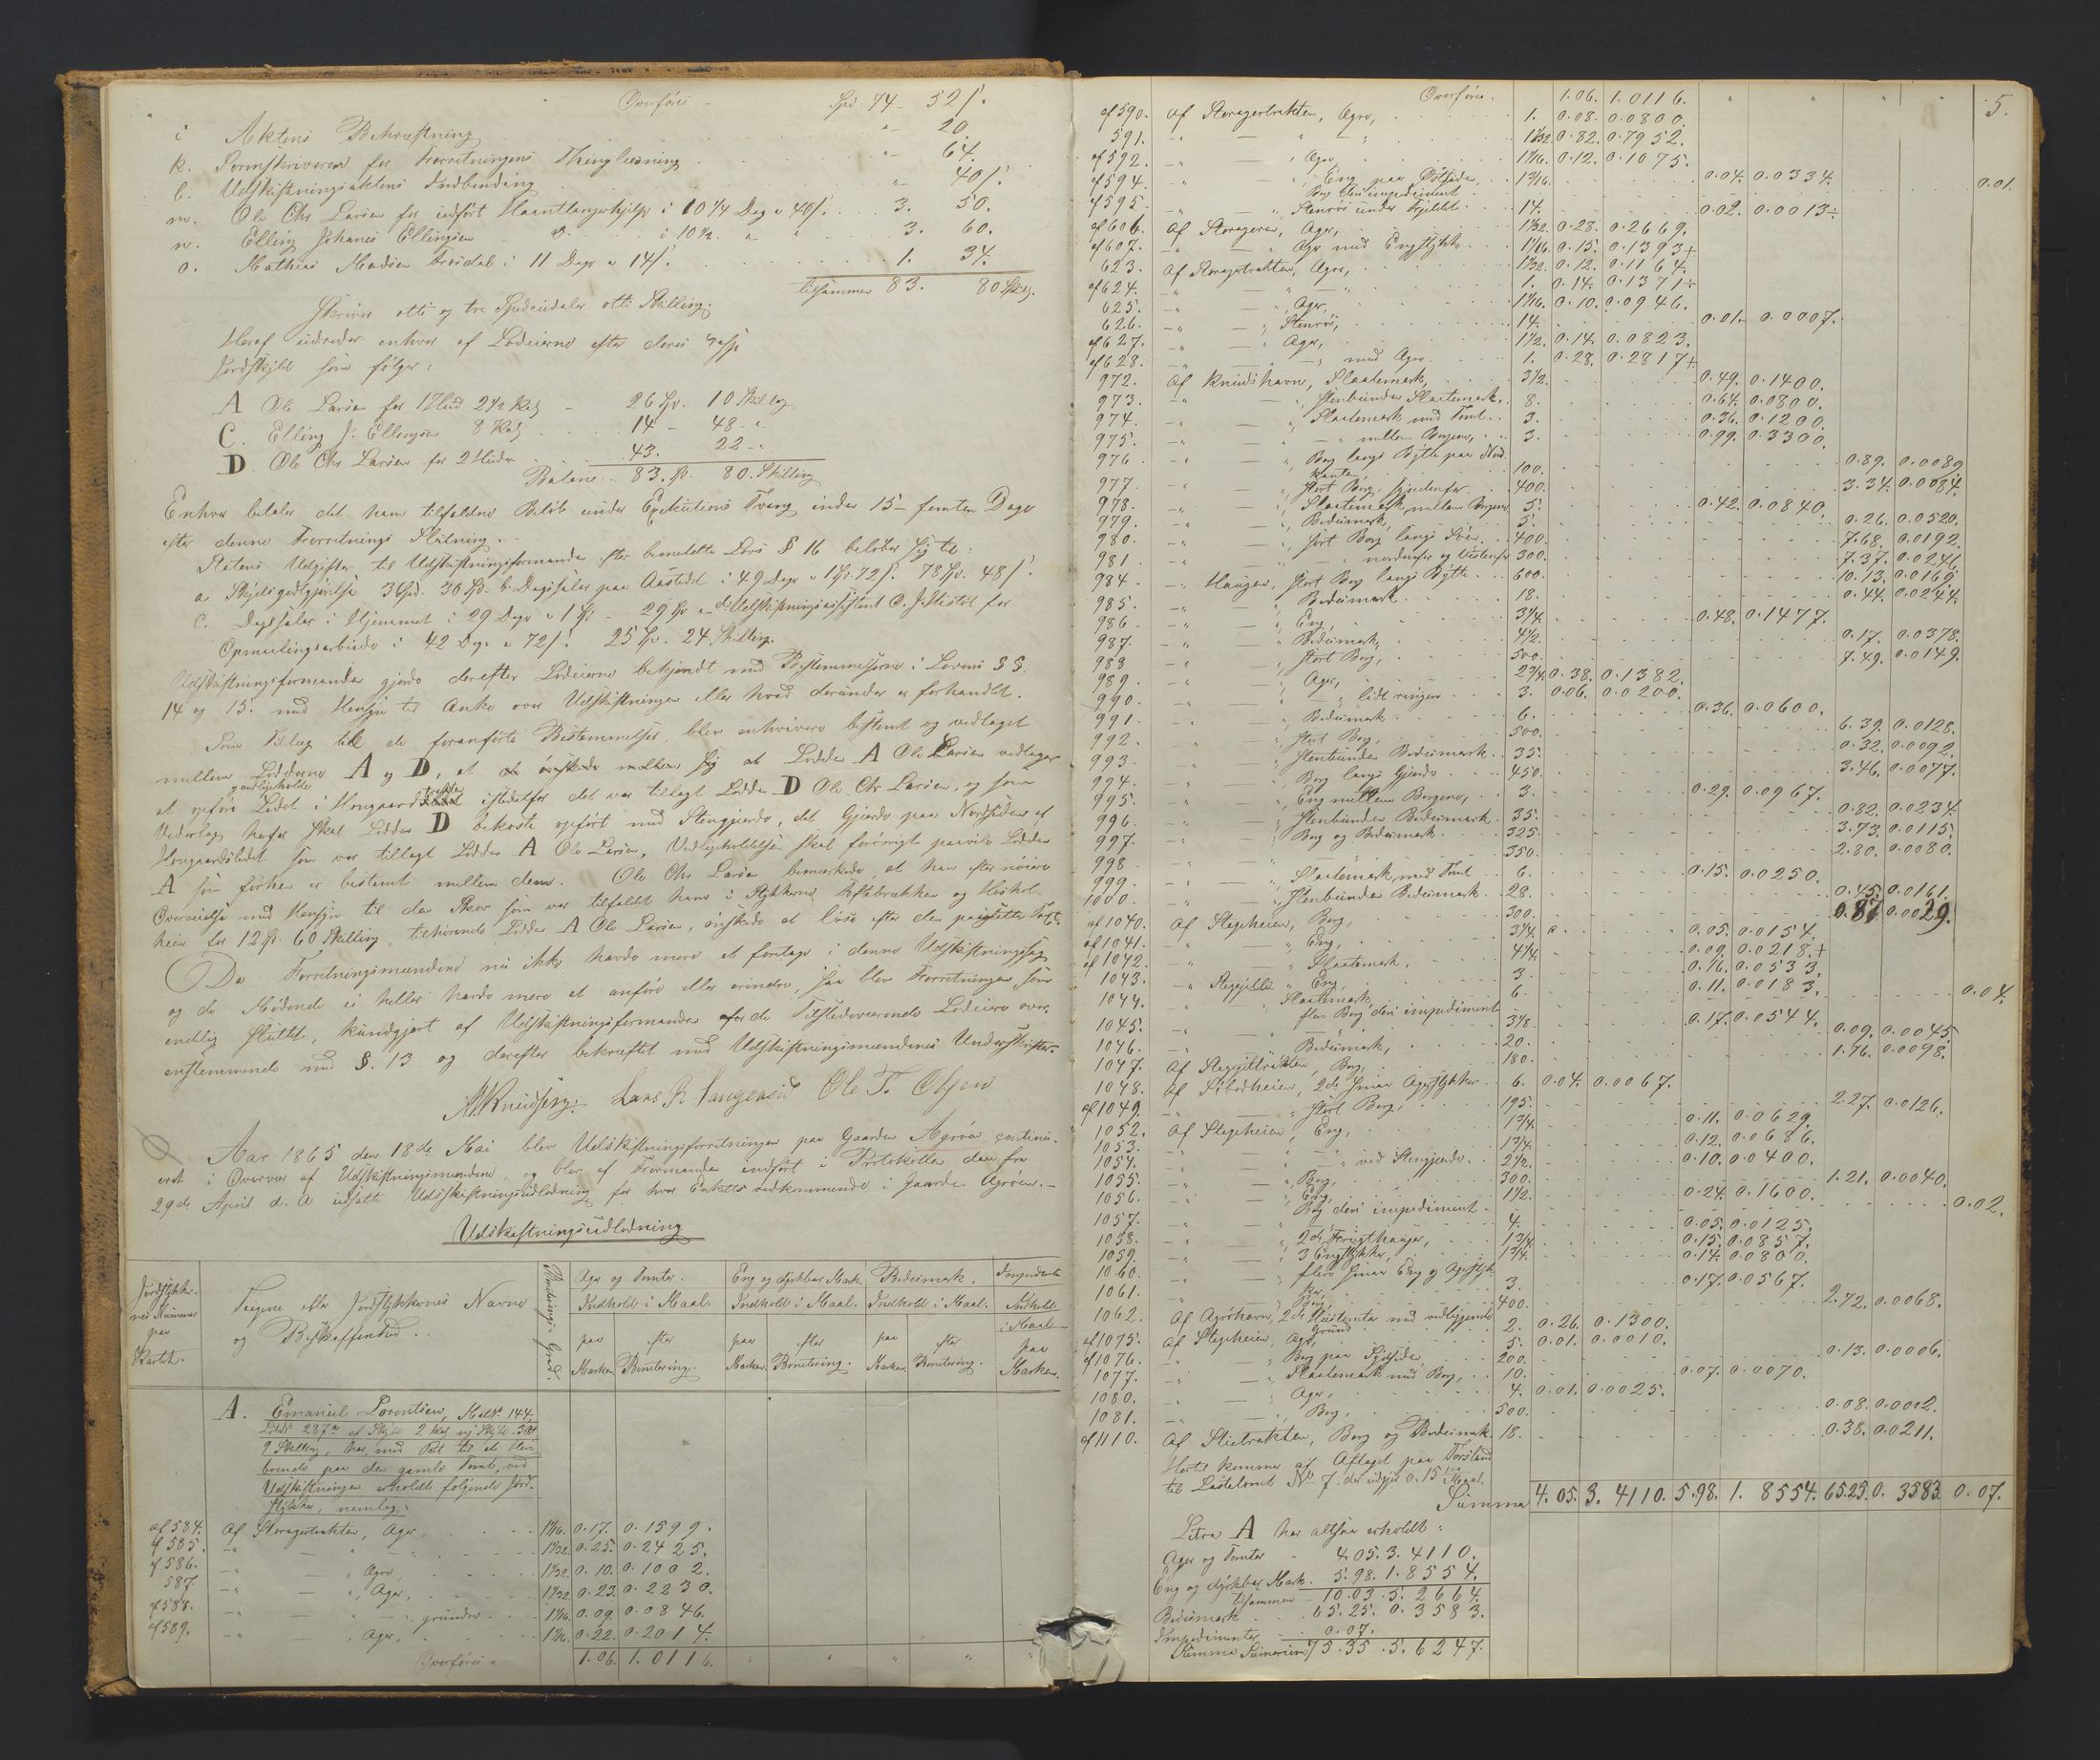 Overføres – Spd 74 – 52 ß.
i Aktens Bekræftning " 20.
k. Sorenskriveren for Forretningens Thinglæsning " 64.
l. Udskiftningsaktens Indbinding " 40 ß.
m. Ole Chr Larsen for udført Haandlangerhjælp i 10 1/4 Dag a 40 ß. 3. 50.
n. Elling Johanes Ellingsen i 10 1/2 " " 3. 60.
o. Mathias Madsen i 11 Dage a 14 ß. 1. 34.
tilsammen 83. 80 Skill.
Skriver otti og tre Speciedaler otti Skilling.
Heraf udreder enhver af Lodeierne efter deres resp
Jordskyld som følger:
A Ole Larsen for 1 Hud 2 1/2 Kalvsk – 26 Spd. 10 Skilling
C. Elling J. Ellingsen 8 Kalvsk 14 – 48 – "
D. Ole Chr Larsen for 2 Huder 43. 22 – "
Balance – 83. Spd. 80. Skilling
Enhver betaler det ham tilfaldne Beløb under Exekutions Tvang inden 15 – femten Dage
efter denne Forretnings Slutning. –
Statens Udgifter til Udskiftningsformanden efter bemeldte Lovs § 16 beløber sig til:
a Skydsgodtgjørelse 36 Spd. 30 ß. b Dagsdaler paa Aastedet i 49 Dage a 1 Spd 72 ß. 78 Spd. 48 ß.
c. Dagsdaler i Hjemmet i 29 Dage a 1 Spd – 29 Spd a – d Udskiftningsassistent C. J. for
Opmaalingsarbeide i 42 Dage a 72 ß. 25 Spd. 24 Skilling.
Udskiftningsformanden gjorde derefter Lodeierne bekjendt med Bestemmelserne i Lovens §§
14 og 15. med Hensyn til Anke over Udskiftningen eller hvad derunder er forhandlet.
Som Tillæg til de foranførte Bestemmelser, blev enhvidere bestemt og vedtaget
mellem Lodderne A og D, at de ønskede mellem sig at Lodden A Ole Larsen vedtager
at opføre og vedligeholde Ledet i Hougaard istedetfor det var tillagt Lodden D Ole Chr Larsen, og som
Vederlag herfor skal Lodden D bekoste opført med Stengjerde, det Gjerde paa Nordsiden af
Hougaardsledet som var tillagt Lodden A Ole Larsen, Vedligeholdelsen skal forøvrigt paavile Lodden
A som forhen er bestemt mellem dem. Ole Chr Larsen bemærkede, at han efter nøiere
Overveielse med Hensyn til den Skov som var tilfaldt ham i Stykkerne Toftebrækken og Hiskol-
heien for 12 Spd. 60 Skilling, tilhørende Lodden A Ole Larsen, ønskede at løse efter den paasatte Taxt.
Da Forretningsmændene nu ikke havde mere at foretage i denne Udskiftningssag
og de Mødende ei heller havde mere at anføre eller erindre, saa blev Forretningen som
endelig sluttet, kundgjort af Udskiftningsformanden for de Tilstedeværende Lodeiere over-
enstemmende med §. 13 og derefter bekræftet med Udskiftningsmændenes Underskrifter.
Lars P. Langeneid Ole T. Olsen
Aar 1865 den 18de Mai blev Udskiftningsforretningen paa Gaarden Agrøen continu-
eret i Overvær af Udskiftningsmændene, og blev af Formanden indført i Protokollen den fra
29de April d. A. udsatte Udskiftningsudlodning for hver Enkelts vedkommende i Gaarden Agrøen. –
Udskiftningsudlodning
Jordstykker-
nes Nummer
paa
Kartet.
Teigene eller Jordstykkernes Navne
og Beskaffenhed.
Bonitering's Grad.
Ager og Tomter. Eng og dyrkbar Mark. Bedesmark. Impedimenter
Indhold i Maal. Indhold i Maal. Indhold i Maal. Indhold i Maal
paa Marken. efter Bonitering. paa Marken. efter Bonitering. paa Marken. efter Bonitering. paa Marken.
A. Emanuel Lorentsen, Mat No 144.
Løbe No 287 a af Skyld 2 Kalvsk ny Skyld
9 Skilling, har, med Ret til at blive
boende paa den gamle Tomt, ved
Udskiftningen erholdt følgende Jord-
stykker, nemlig:
af 584. Af Storagertrakten, Ager, 1 1/16. 0.17. 0.1599.
af 585. " – " – " 1 1/32. 0.25. 0.2425.
af 586. " – " Ager, 1 1/32. 0.10. 0.1002.
587. " – " Ager, 1 1/32. 0.23. 0.2230.
af 588. " – " – grundere 1 1/16. 0.09. 0.0846.
af 589. " – " Ager, 1 1/16. 0.22. 0.2014.
Overføres – 1.06. 1.0116. " " " " "
5.
Overføres. 1.06. 1.0116. " " " "
af 590. Af Storagertrakten, Ager, 1. 0.08. 0.0800.
591. " – " – " 1 1/32. 0.82. 0.7952.
af 592. " – " Ager, 1 1/16. 0.12. 0.1075.
af 594. " – " Eng paa Østsiden, 1 3/16. 0.04. 0.0334.
Berg deri impediment 0.01.
af 595. " – " Stenrøs under Fjeldet 14. 0.02. 0.0013÷
af 606. Af Storageren, Ager, 1 1/32. 0.28. 0.2669.
af 607. " – " Ager med Engstykke 1 1/16. 0.15. 0.1393+
623. Af Storagertrakten, Ager, 1 1/32. 0.12. 0.1164.
af 624. " – " – " 1. 0.14. 0.1371÷
625. " – " Ager, 1 1/16. 0.10. 0.0946.
626. " – " Stenrøs, 14. 0.01. 0.0007.
af 627. " – " Ager, 1 1/2. 0.14. 0.0823.
af 628. " – " med Ager 1. 0.28. 0.2817+
972. Af Knudshavn, Slaattemark, 3 1/2. 0.49. 0.1400.
973. " – " Stenbunden Slaattemark, 8. 0.64. 0.0800.
974. " – " Slaattemark med Tomt 3. 0.36. 0.1200.
975. " – " – mellem Bergene, 3. 0.99. 0.3300.
976 " – " Berg langs Bøtte paa Nord-
kanten 100. 0.89. 0.0089
977. " – " Stort Berg, søndenfor 400. 3.34. 0.0084.
978. " – " Slaattemark mellem Bergene 5. 0.42. 0.0840.
979. " – " Bedesmark, 5. 0.26. 0.0520.
980. " – " Stort Berg langs Søen, 400. 7.68. 0.0192.
981 " – " – nordenfor og vestenfor 300. 7.37. 0.0246.
984. " Haugen, Stort Berg langs Bøtte 600. 10.13. 0.0169.
985. " – " Bedesmark 18. 0.44. 0.0244.
986 " – " Eng, 3 1/4. 0.48. 0.1477.
987. " – " Bedesmark, 4 1/2. 0.17. 0.0378.
988 " – " Stort Berg, 500. 7.49. 0.0149.
989. " – " Ager, 2 3/4. 0.38. 0.1382.
990. " – " " lidt ringere 3. 0.06. 0.0200.
991. " – " Bedesmark 6. 0.36. 0.0600.
992. " – " Stort Berg, 500. 6.39. 0.0128.
993. " – " Stenbunden Bedesmark 35. 0.32. 0.0092.
994. " – " Berg langs Gjerde 450. 3.46. 0.0077.
995. " – " Eng mellem Bergene, 3. 0.29. 0.0967.
996. " – " Stenbunden Bedesmark 35. 0.82. 0.0234.
997. " – " Berg og Bedesmark 325. 3.73. 0.0115.
998 " – " 350. 2.80. 0.0080.
999. " – " Slaattemark med Tomt 6. 0.15. 0.0250.
1000. " – " Stenbunden Bedesmark 28. 0.45. 0.0161.
af 1040. Af Stegeheien, Berg, 300. 0.87. 0.0029.
af 1041. " – " Eng, 3 1/4. 0.05. 0.0154.
af 1042. " – " Slaattemark, 4 1/4. 0.09. 0.0218.+
1043. " Stegejellie " Eng, 3. 0.16. 0.0533.
1044. " – " Slaattemark, 6. 0.11. 0.0183.
flere Berg deri impediment 0.04.
1045. " – " " 3 1/8. 0.17. 0.0544.
1046. " – " Bedesmark, 20. 0.09. 0.0045.
1047. Af Stegejellietrakten, Berg, 180. 1.76. 0.0098.
1048. Af Stbrdheien, 2de smaa Agerstykker 6. 0.04. 0.0067.
af 1049. " – " Stort Berg, 195. 2.27. 0.0126.
1052. Af Stegeheien, Eng, 1 3/4. 0.11. 0.0629.
1053. " – " " 1 3/4. 0.12. 0.0686.
1054. " – " – ved Stengjerde 2 1/2. 0.10. 0.0400.
1055. " – " Berg, 300. 1.21. 0.0040.
1056. " – " Eng, 1 1/2. 0.24. 0.1600.
Berg deri impediment 0.02.
1057. " – " 4. 0.05. 0.0125.
1058. " – " 2de Frugthauger, 1 3/4. 0.15. 0.0857.
1059. " – " 3 Engstykker, 1 3/4. 0.14. 0.0800.
1060. " – " flere smaa Eng og Agerstyk-
ker, 3. 0.17. 0.0567.
1061. " – " Berg, 400. 2.72. 0.0068.
1062. Af Agrøhavn, 2de Hustomter med vedliggende
Grund 2. 0.26. 0.1300.
af 1075. Af Stegeheien, Ager, 5. 0.01. 0.0010.
af 1076. " – " Berg paa Sydsiden, 200. 0.13. 0.0006.
1077. " – " Slaattemark med Berg, 10. 0.07. 0.0070.
1080. " – " Ager, 4. 0.01. 0.0025.
1081. " – " Berg, 500. 0.08. 0.0002.
af 1110. Af Stietrakten, Berg og Bedesmark 18. 0.38. 0.0211.
Hertil kommer af Aftaget paa Torsland
til Lastetomt No 7. der udgjør 0.15 Maal.
Summa 4.05. 3.4110. 5.98. 1.8554. 65.25. 0.3583 0.07.
Litra A har altsaa erholdt:
Ager og Tomter 4.05. 3.4110.
Eng og dyrkbar Mark. 5.98. 1.8554.
tilsammen – 10.03. 5.2664.
Bedesmark 65.25. 0.3583.
Impedimenter 0.07.
Summa Summarum 75.35. 5.6247.